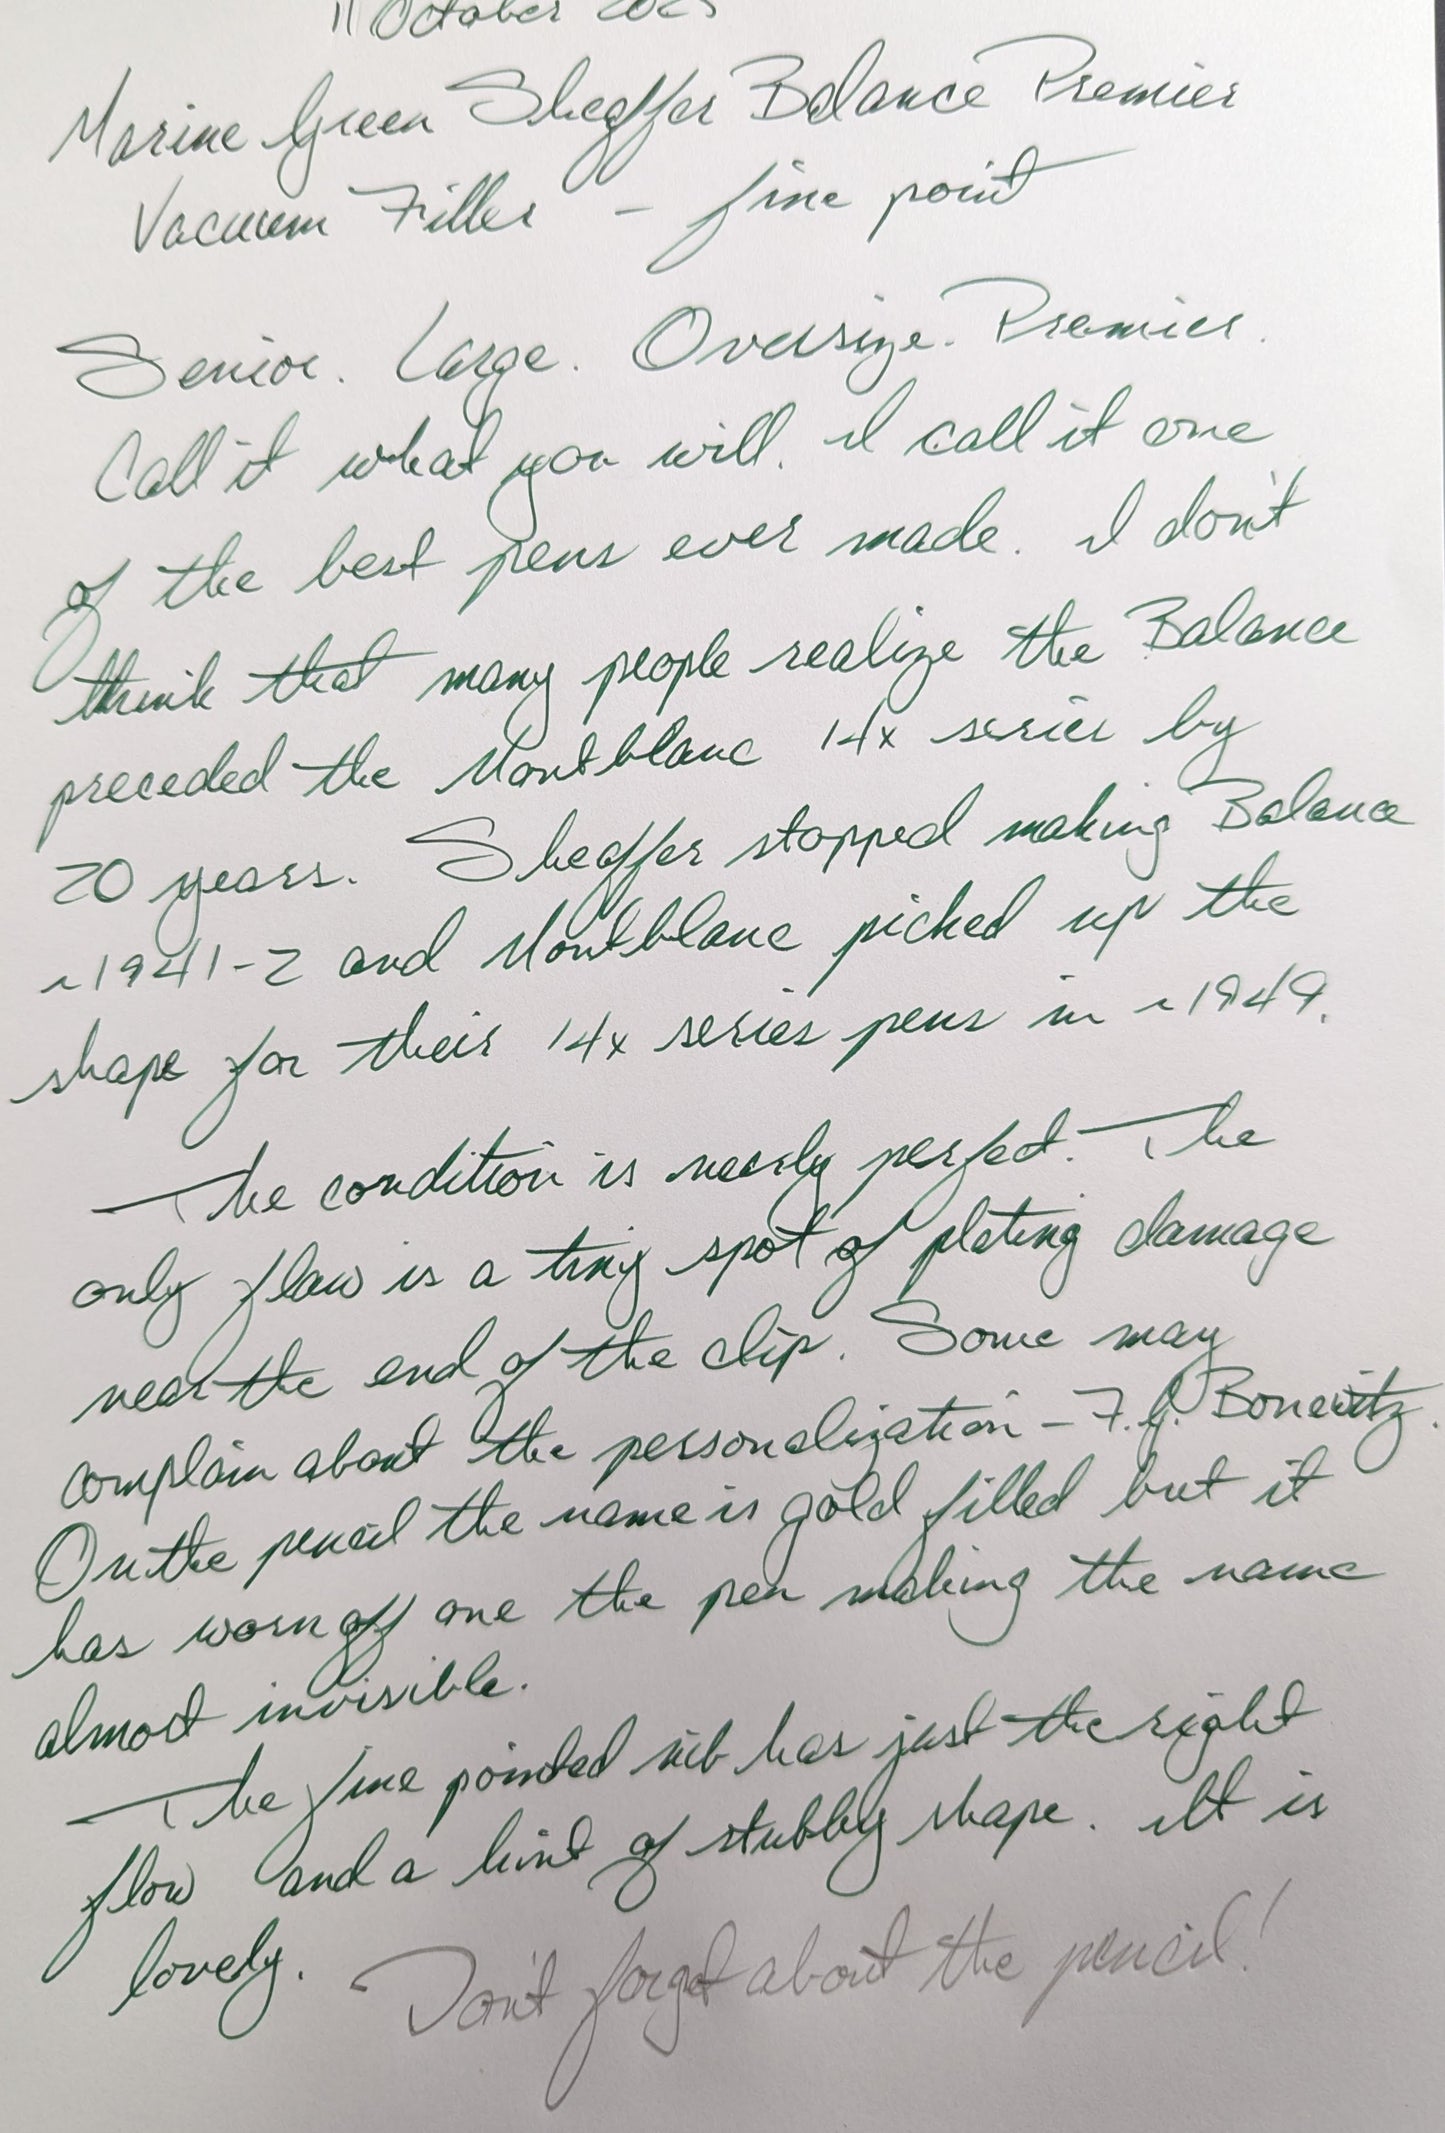 11 October 2025
Marine Green Sheaffer Balance Premier
Vacuum Filler - fine point
Senior. Large. Oversize. Premier.
Call it what you will. I call it one
of the best pens ever made. I don't
think that many people realize the Balance
preceded the Montblanc 14x series by
20 years. Sheaffer stopped making Balance
~1941-2 and Montblanc picked up the
shape for their 14x series pens in ~1949.
The condition is nearly perfect. The
only flaw is a tiny spot of plating damage
near the end of the clip. Some may
complain about the personalization - F.G. Bonewitz.
On the pencil the name is gold filled but it
has worn off one the pen making the name
almost invisible.
The fine pointed nib has just the right
flow and a hint of stubby shape. It is
lovely. Don't forget about the pencil!